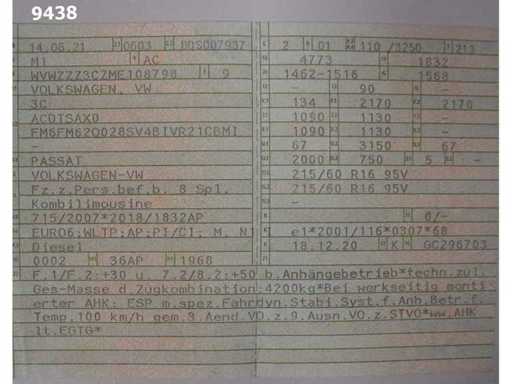 9438
14.06.21 0603 2 01 110 /3250 213
M1 AC 4773 1832
WVWZZZ3CZME108798 9 1462-1516 1568
VOLKSWAGEN, VW - 90 -
3C 134 2170 2170
ACDTSAX0 1050 1130 -
FM6FM62Q028SV4BIVR21CBMI 1090 1130 -
- 67 3150 67
PASSAT 2000 750 5 -
VOLKSWAGEN-VW 215/60 R16 95V
Fz.z.Pers.bef.b. 8 Spl. 215/60 R16 95V
Kombilimousine -
715/2007*2018/1832AP 6/-
EURO6;WLTP;AP;PI/CI; M, N1 e1*2001/116*0307*68
Diesel 18.12.20 K GC296703
0002 36AP 1968
F.1/F.2:+30 u. 7.2/8.2:+50 b.Anhängebetrieb*techn.zul.
Ges-Masse d.Zugkombination:4200kg*Bei werkseitig monti
erter AHK: ESP m.spez.Fahrdyn.Stabi.Syst.f.Anh.Betr.f.
Temp.100 km/h gem.3.Aend.VO.z.9.Ausn.VO.z.STVO*ww.AHK
lt.EGTG*